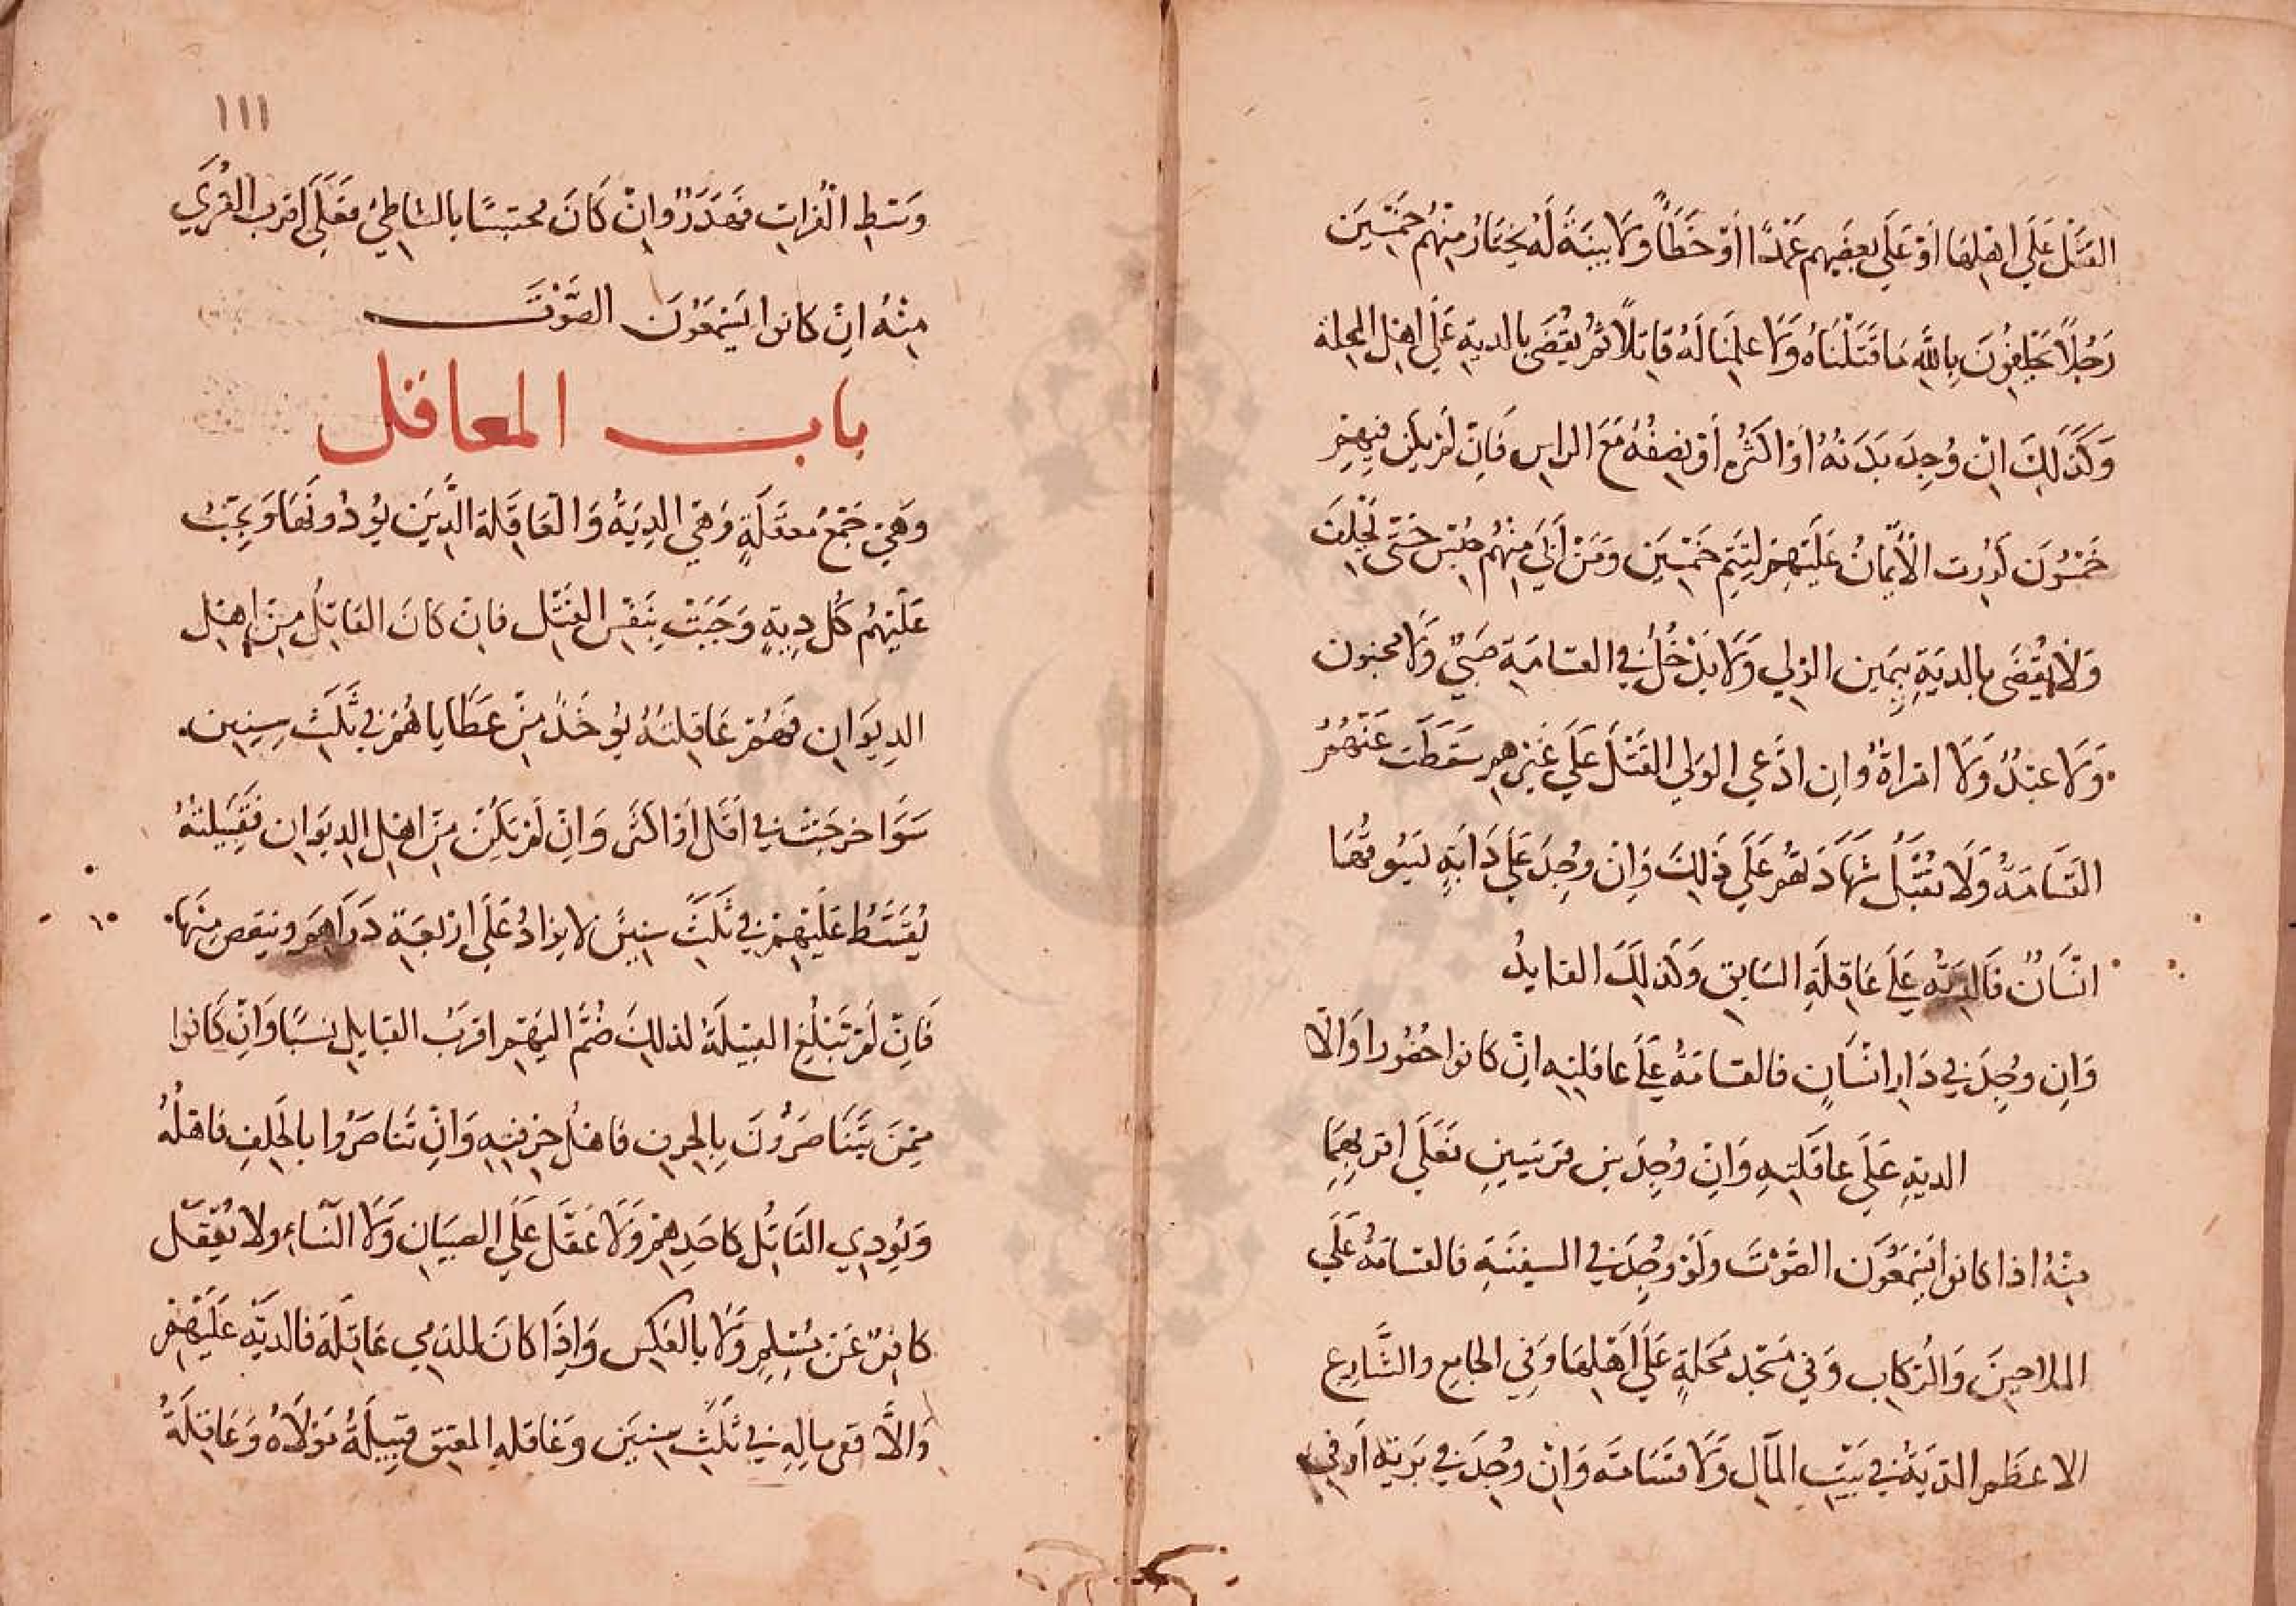 القَتْلَ عَلَي اهْلِهَا اَوْ عَلَي بعضِهم عَمْدًا اَوْ خَطَأً وَلَا بينَةَ لَهُ يختَارُ مِنْهُم خَمْسِيَن
رَجُلًا يَحْلِفُونَ بِاللَّهِ مَا قَتَلْنَاهُ وَلَا عَلِمْنَا لَهُ قَاتِلًا ثم يُقْضَى بالديةِ عَلَي اهْلِ المحلة
وَكَذَلِكَ انْ وُجِدَ بَدَنهُ اَوْ اكثَرُه أوْ نِصفُهُ مَعَ الراسِ فَانْ لَمْ يكن فِيهِمْ
خَمْسُونَ كُرِرت الْأَيْمَانُ عَلَيْهِمْ لِتَتِم خَمْسِيَن وَمَنْ اَبَي مِنْهُم حُبِسَ حَتَّى يَحْلِفَ
وَلَا يُقْضَى بالديَةِ بِيَمين الولي وَلَا يَدْخُلُ في القسَامَةِ صَبيٌ وَلَا مجنون
وَلَا عَبْدٌ وَلَا امْرَاةٌ وَان ادَّعي الوَلي القَتْلَ عَلَي غَيْرِهم سَقَطَت عَنْهُمُ
القَسَامَةُ وَلَا تُقْبَلُ شَهَادَتهُم عَلَي ذَلِكَ وَانْ وجِدَ عَلَي دَابَةٍ يَسُوقُهَا
انْسَانٌ فَالدِيَةُ عَلَي عَاقِلَةِ السَايق وَكَذلِكَ القايدُ
وَان وجِدَ في دَارِ انْسَانٍ فالقسَامَةُ عَلَي عاقلتِهِ انْ كانوا حُضُورا وَالَّا
الديةِ عَلَي عاقَلتِهِ وَانْ وُجِدَ بين قريتين فَعَلَي اقربهمَا
مِنْهُ اذا كانوا يَسْمَعُون الصَّوْتَ وَلَوْ وجِدَ في السفينَةِ فالقسامَةُ عَلَي
الملاحِيَن وَالرُكابِ وَفي مَسْجد مَحَلةٍ عَلَي اَهْلِهَا وَفي الجامِع والشَّارِعِ
الاعظَمِ الدِيَةُ في بَيْتِ المَالِ وَلَا قَسَامَة وَانْ وُجِدَ في بَريَّه اَو في
١١١
وَسَطِ الفُراتِ فهَدَرٌ وانْ كَانَ محتبسًا بالشاطِئِ فعَلَي اقرب القُرَي
مِنْهُ انْ كانوا يَسْمَعُونَ الصَّوْتَ
باب المعاقل
وَهِيَ جَمْعُ مَعْقَلَةٍ وَهْيَ الديَةُ وَالعَاقِلة الَّذِينَ يؤدُونَهَا وَيَجِبُ
عَلَيْهِم كُل دِيَةٍ وَجَبَتْ بِنَفْسِ القَتْل فان كانَ القاتِلُ مِنْ اهْلِ
الدِيوَانِ فهُمْ عَاقِلتُهُ يؤخَذُ مِنْ عَطَايَاهُمْ في ثَلَثِ سِنِين
سَوَا خرجَتْ في اقَل اَوْ اكثَر وَانْ لَمْ يَكن مِنْ اهْلِ الدِيوَانِ فَقَبيلتُهُ
تُقَسَّطُ عَلَيْهِمْ في ثَلَثِ سِنِينَ لا يزادُ عَلَي اَرْبعَةِ دَرَاهِمَ وينقص مِنْهَا
١٠
فَانْ لَمْ تَبْلُغِ القبيلَةُ لذلِكَ ضُمَّ اليْهِم اقرَبُ القبايلِ نسَبًا وَانْ كَانُوا
مِمَّنْ يَتَنَاصَرُونَ بِالحِرفِ فاهْلُ حِرفتِهِ وَانْ تَنَاصَرُوا بالحَلِفِ فاهْلُهُ
وَيُودي القَاتِلُ كاحَدِهِمْ وَلَا عَقْلَ عَلَي الصبيَانِ وَلَا النّسَاءِ ولا يَعْقل
كافِرٌ عَنْ مُسْلِمٍ وَلَا بالعَكس وَاذَا كانَ للذمي عَاقِلَة فالديَّه عَلَيْهِمْ
وَالَّا ففي مالِهِ في ثَلَثِ سِنِيَن وَعَاقلهِ المعتِق قَبِيلَةُ مَوْلَاهُ وَعَاقِلَةُ